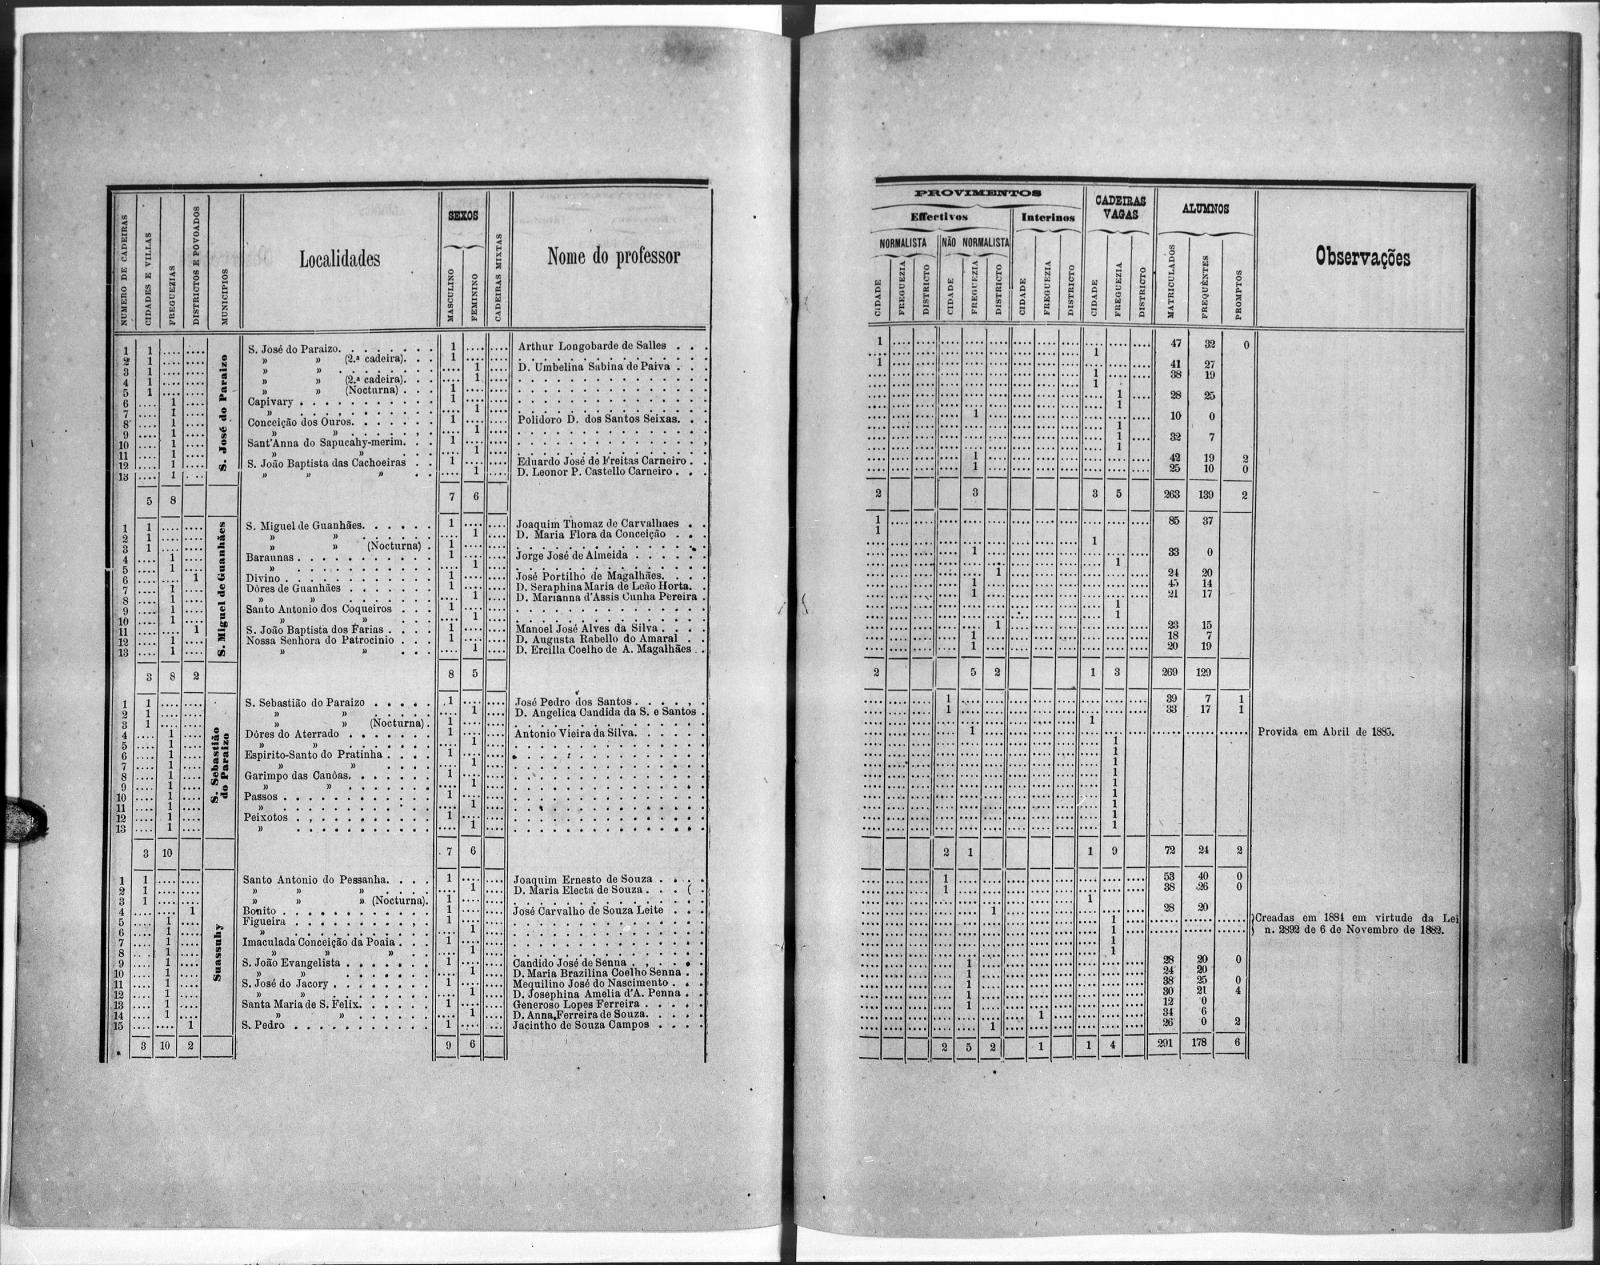 NUMERO DE CADEIRAS | CIDADES E VILLAS | FREGUEZIAS | DISTRICTOS E POVOADOS | MUNICIPIOS | Localidades | SEXOS | MASCULINO | FEMININO | CADEIRAS MIXTAS | Nome do professor
PROVIMENTOS | CADEIRAS VAGAS | ALUMNOS | Observações
Effectivos | Interinos
NORMALISTA | NÃO NORMALISTA
CIDADE | FREGUEZIA | DISTRICTO | CIDADE | FREGUEZIA | DISTRICTO | CIDADE | FREGUEZIA | DISTRICTO | CIDADE | FREGUEZIA | DISTRICTO | MATRICULADOS | FREQUENTES | PROMPTOS
S. José do Paraizo
1 1 S. José do Paraizo. 1 Arthur Longobarde de Salles 1 47 32 0
2 1 » » (2.ª cadeira). 1 1
3 1 » » 1 D. Umbelina Sabina de Paiva 1 41 27
4 1 » » (2.ª cadeira). 1 1 38 19
5 1 » » (Nocturna) 1 1
6 1 Capivary 1 1 28 25
7 1 » 1 1
8 1 Conceição dos Ouros. 1 Polidoro D. dos Santos Seixas. 1 10 0
9 1 » » 1 1
10 1 Sant'Anna do Sapucahy-merim. 1 1 32 7
11 1 » » 1 1
12 1 S. João Baptista das Cachoeiras 1 Eduardo José de Freitas Carneiro 1 42 19 2
13 1 » » » 1 D. Leonor P. Castello Carneiro 1 25 10 0
5 8 7 6 2 3 3 5 263 139 2
S. Miguel de Guanhães
1 1 S. Miguel de Guanhães. 1 Joaquim Thomaz de Carvalhaes 1 85 37
2 1 » » 1 D. Maria Flora da Conceição 1
3 1 » » (Nocturna) 1 1
4 1 Baraunas 1 Jorge José de Almeida 1 33 0
5 1 » 1 1
6 1 Divino 1 José Portilho de Magalhães. 1 24 20
7 1 Dôres de Guanhães 1 D. Seraphina Maria de Leão Horta. 1 45 14
8 1 » » 1 D. Marianna d'Assis Cunha Pereira 1 21 17
9 1 Santo Antonio dos Coqueiros 1 1
10 1 » » 1 1
11 1 S. João Baptista dos Farias 1 Manoel José Alves da Silva 1 23 15
12 1 Nossa Senhora do Patrocinio 1 D. Augusta Rabello do Amaral 1 18 7
13 1 » » 1 D. Ercilla Coelho de A. Magalhães 1 20 19
3 8 2 8 5 2 5 2 1 3 269 129
S. Sebastião do Paraizo
1 1 S. Sebastião do Paraizo 1 José Pedro dos Santos 1 39 7 1
2 1 » » 1 D. Angelica Candida da S. e Santos 1 33 17 1
3 1 » » (Nocturna) 1 1
4 1 Dôres do Aterrado 1 Antonio Vieira da Silva. 1 Provida em Abril de 1885.
5 1 » » 1 1
6 1 Espirito-Santo do Pratinha 1 1
7 1 » » 1 1
8 1 Garimpo das Canôas. 1 1
9 1 » » 1 1
10 1 Passos 1 1
11 1 » 1 1
12 1 Peixotos 1 1
13 1 » 1 1
3 10 7 6 2 1 1 9 72 24 2
Suassuhy
1 1 Santo Antonio do Pessanha. 1 Joaquim Ernesto de Souza 1 53 40 0
2 1 » » » 1 D. Maria Electa de Souza 1 38 26 0
3 1 » » » (Nocturna). 1 1
4 1 Bonito 1 José Carvalho de Souza Leite 1 28 20
5 1 Figueira 1 1 Creadas em 1884 em virtude da Lei
6 1 » 1 1 n. 2892 de 6 de Novembro de 1882.
7 1 Imaculada Conceição da Poaia 1 1
8 1 » » » 1 1
9 1 S. João Evangelista 1 Candido José de Senna 1 28 20 0
10 1 » » 1 D. Maria Brazilina Coelho Senna 1 24 20
11 1 S. José do Jacory 1 Mequilino José do Nascimento 1 38 25 0
12 1 » » 1 D. Josephina Amelia d'A. Penna 1 30 21 4
13 1 Santa Maria de S. Felix. 1 Generoso Lopes Ferreira 1 12 0
14 1 » » 1 D. Anna Ferreira de Souza. 1 34 6
15 1 S. Pedro 1 Jacintho de Souza Campos 1 26 0 2
3 10 2 9 6 2 5 2 1 1 4 291 178 6